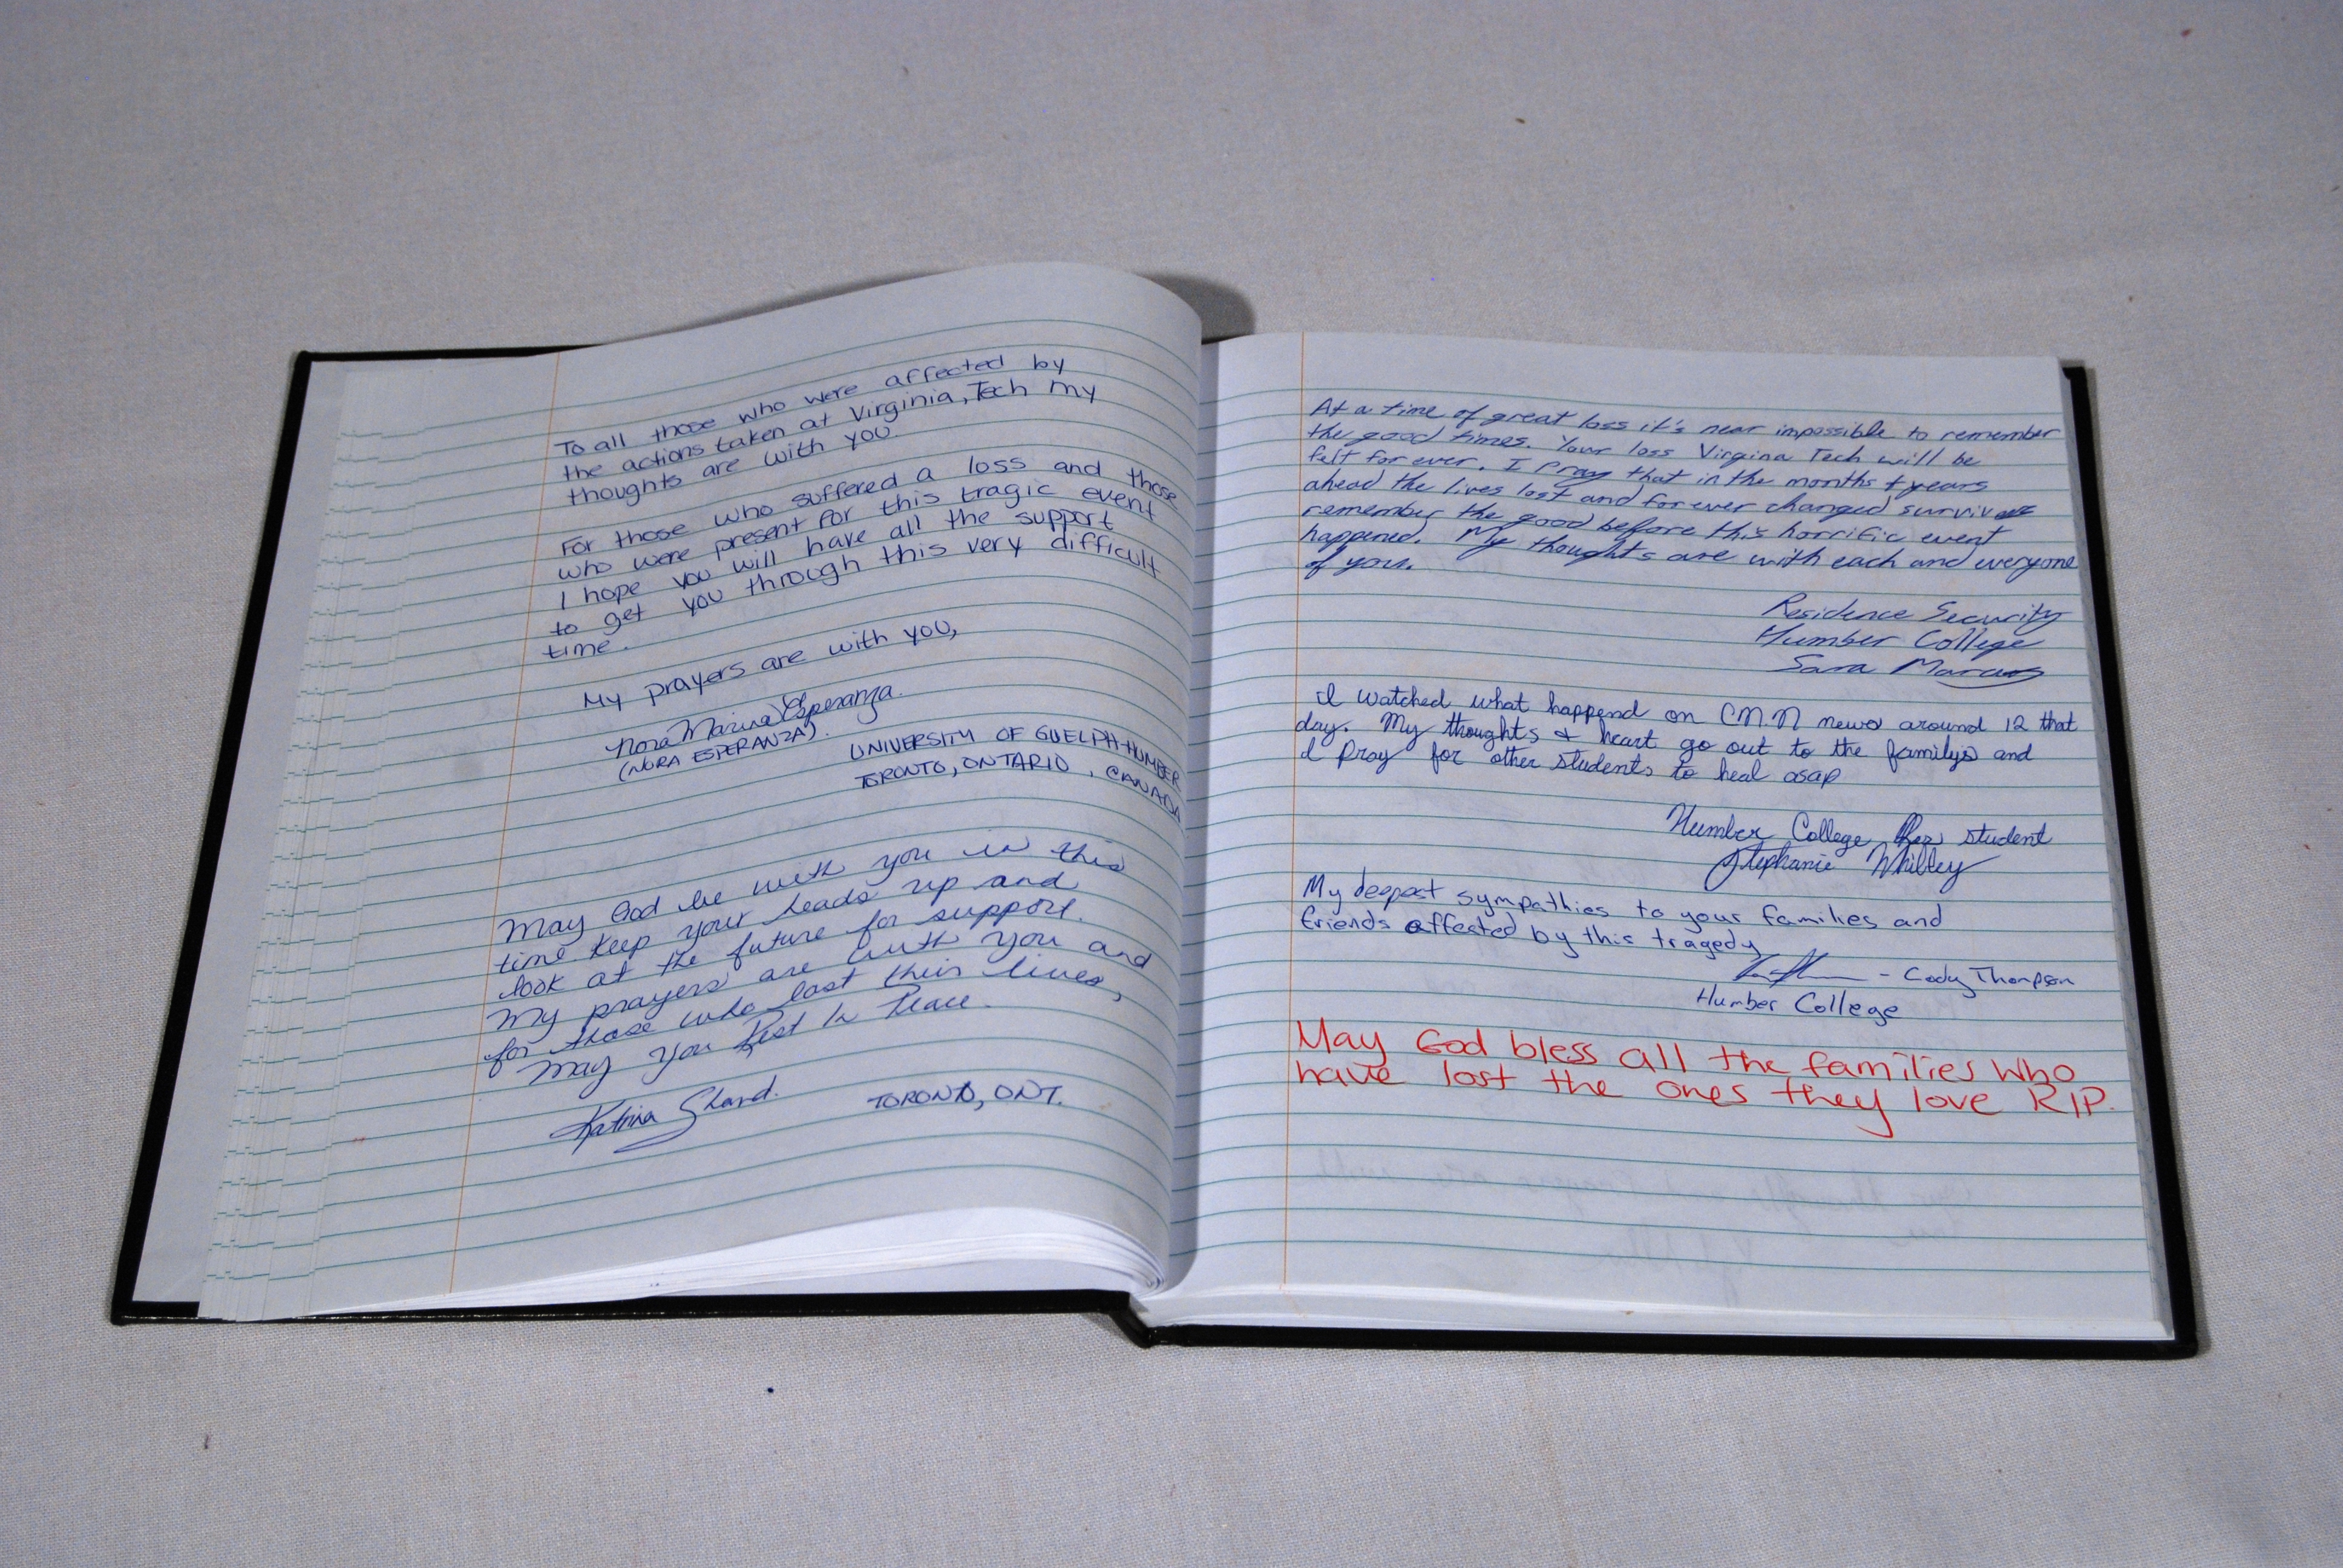 To all those who were affected by
the actions taken at Virginia, Tech my
thoughts are with you.
For those who suffered a loss and those
who were present for this tragic event
I hope you will have all the support
to get you through this very difficult
time.
My prayers are with you,
Nora Marina Esperanza.
(NORA ESPERANZA).
UNIVERSITY OF GUELPH-HUMBER
TORONTO, ONTARIO, CANADA
May God be with you in this
time. Keep your heads up and
look at the future for support.
My prayers are with you and
for those who lost their lives,
May you Rest In Peace.
Katrina Shand.
TORONTO, ONT.
At a time of great loss it's near impossible to remember
the good times. Your loss Virgina Tech will be
felt for ever. I Pray that in the months + years
ahead the lives lost and forever changed
remember the good before this horrific event
happened. My thoughts are with each and everyone
of you.
Residence Security
Humber College
Sara Marcus
I watched what happend on CN.N news around 12 that
day. My thoughts & heart go out to the familys and
I pray for other students to heal asap
Humber College student
Stephanie Whilley
My deepest sympathies to your families and
friends affected by this tragedy
- Cody Thompson
Humber College
May God bless all the families who
have lost the ones they love RIP.